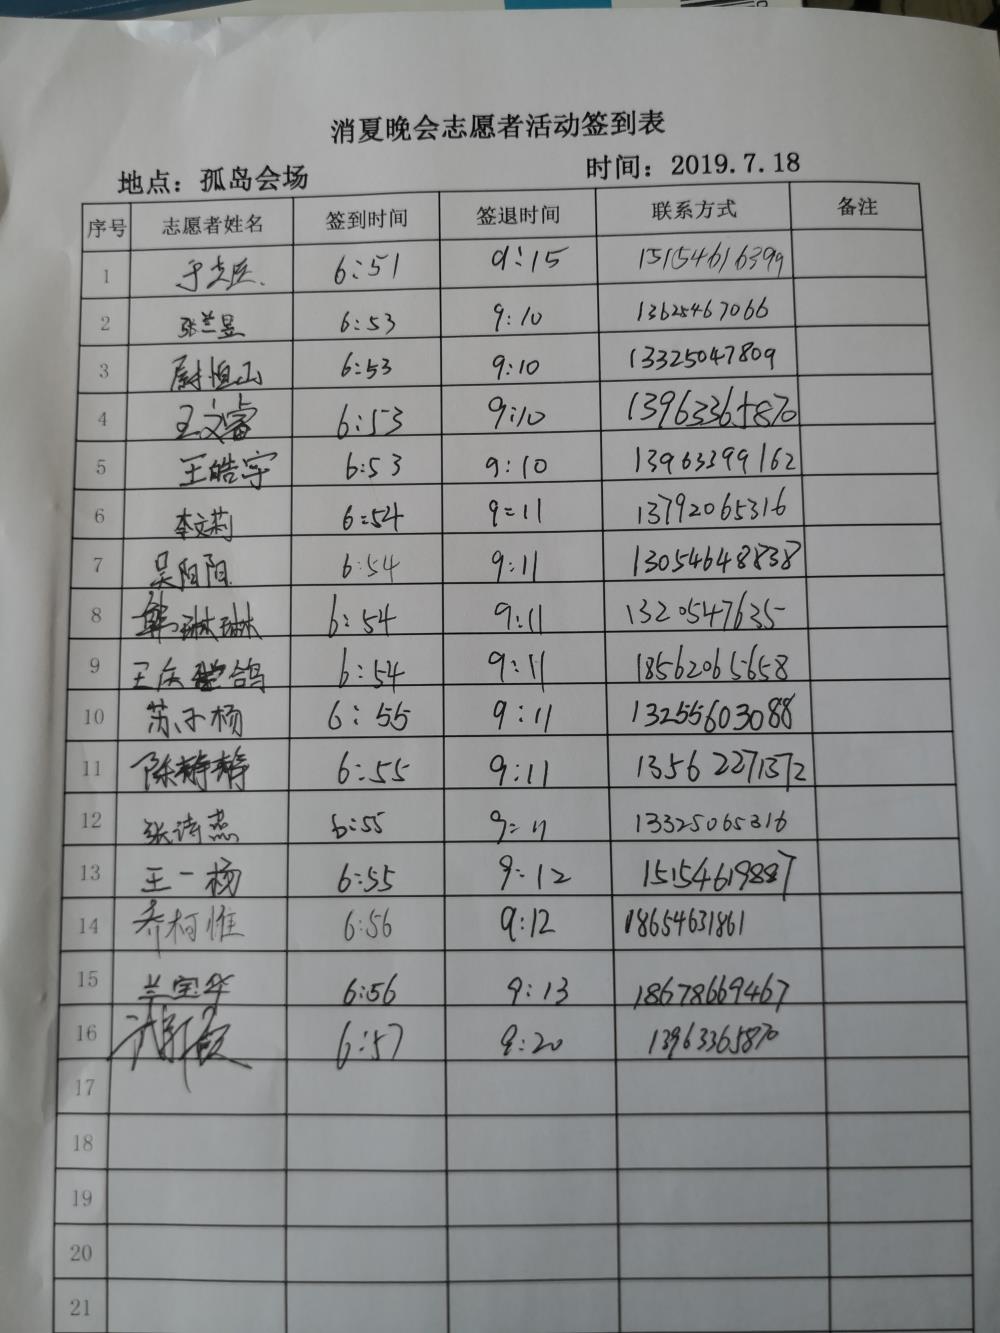 消夏晚会志愿者活动签到表
地点：孤岛会场 时间：2019.7.18
序号 志愿者姓名 签到时间 签退时间 联系方式 备注
1 6:51 9:15 15154616399
2 张兰昱 6:53 9:10 13625467066
3 尉恒山 6:53 9:10 13325047809
4 王文睿 6:53 9:10 13963365870
5 王皓宇 6:53 9:10 13963399162
6 李文莉 6:54 9=11 13792065316
7 吴阳阳 6:54 9:11 13054648838
8 韩琳琳 6:54 9:11 1320547635
9 王庆 鸽 6:54 9:11 18562065658
10 苏子杨 6:55 9:11 13255603088
11 陈静静 6:55 9:11 13562271372
12 张诗燕 6:55 9=11 13325065316
13 王一杨 6:55 9:12 15154619887
14 乔柯惟 6:56 9:12 18654631861
15 兰宝华 6:56 9:13 18678669467
16 6:57 9:20 13963365870
17
18
19
20
21